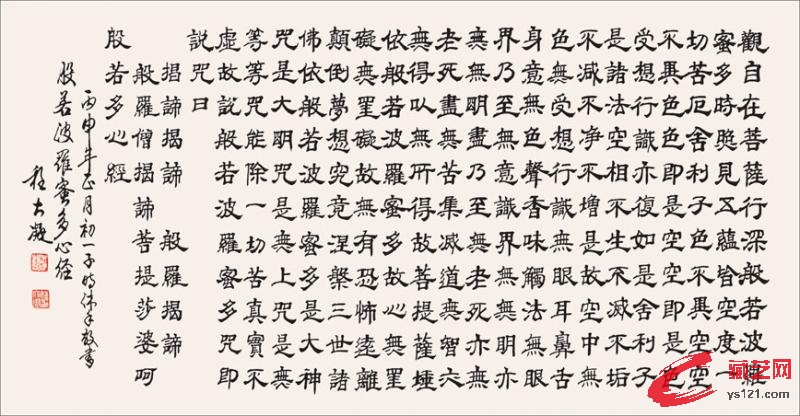 觀自在菩薩行深般若波羅
蜜多時照見五蘊皆空度一
切苦厄舍利子色不異空空
不異色色即是空空即是色
受想行識亦復如是舍利子
是諸法空相不生不滅不垢
不减不净不增是故空中無
色無受想行識無眼耳鼻舌
身意無色聲香味觸法無眼
界乃至無意識界無無明亦
無無明盡乃至無老死亦無
老死盡無苦集滅道無智亦
無得以無所得故菩提薩埵
依般若波羅蜜多故心無罣
礙無罣礙故無有恐怖遠離
顛倒夢想究竟涅槃三世諸
佛依般若波羅蜜多是大神
咒是大明咒是無上咒是無
等等咒能除一切苦真實不
虛故說般若波羅蜜多咒即
說咒曰
揭諦揭諦 般羅揭諦
般羅僧揭諦菩提莎婆呵
般若多心經
丙申年正月初一子時沐手敬書
般若波羅蜜多心經
藏艺网
ys121.com